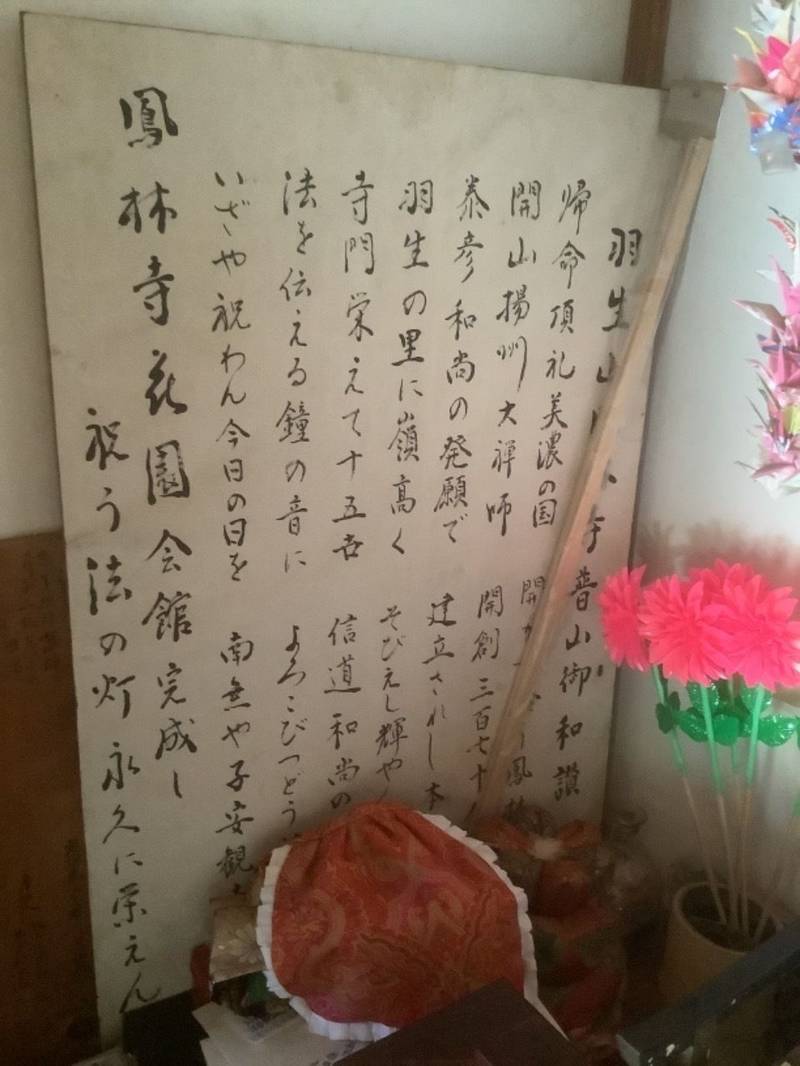 羽生山 寺普山御和讃
帰命頂礼美濃の国
開山揚州大禅師 開創三百七十
泰彦和尚の発願で 建立されし本
羽生の里に嶺高く そびえし輝や
寺門栄えて十五世 信道和尚の
法を伝える鐘の音に よろこびつどう
いざや祝わん今日の日を 南無や子安観
鳳林寺花園会館完成し
祝う法の灯永久に栄えん